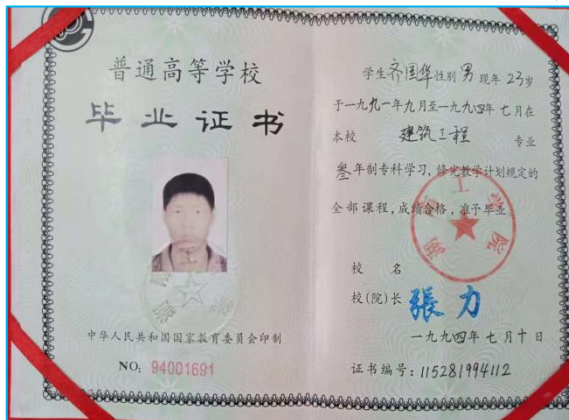 普通高等学校
毕业证书
中华人民共和国国家教育委员会印制
NO: 94001691
学生齐国华性别男现年23岁
于一九九一年九月至一九九四年七月在
本校 建筑工程 专业
叁年制专科学习,修完教学计划规定的
全部课程,成绩合格,准予毕业
校 名
校(院)长 張力
一九九四年七月十日
证书编号:115281994112